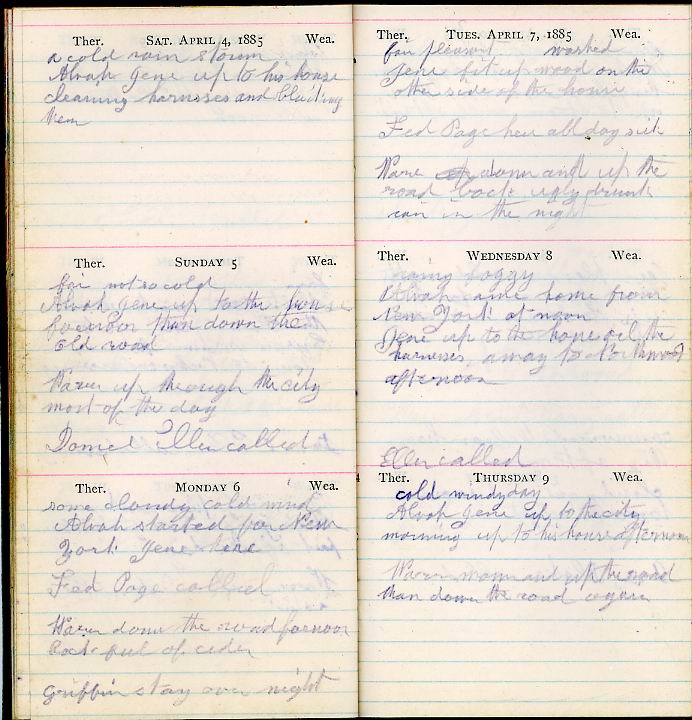 Ther. SAT. APRIL 4, 1885 Wea.
a cold rain storm
Alvah Gene up to his house
cleaning harnesses and blacking
them
Ther. SUNDAY 5 Wea.
fair not so cold
Alvah Gene up to the house
forenoon than down the
old road
Warren up through the city
most of the day
Daniel Ellen called
Ther. MONDAY 6 Wea.
some cloudy cold wind
Alvah started for New
York Gene here
Fed Page called
Warren down the road forenoon
back full of cider
Griffin stay over night
Ther. TUES. APRIL 7, 1885 Wea.
fair pleasant washed
Gene fit up wood on the
other side of the house
Fed Page hear all day sick
down and up the
road back ugly drunk
in the night
Ther. WEDNESDAY 8 Wea.
rainy foggy
Alvah came home from
New York at noon
Gene up to the oil the
harnesses away to
afternoon
Ellen called
Ther. THURSDAY 9 Wea.
cold windy day
Alvah Gene up to the city
morning up to his house afternoon
Warren and up the road
than down the road again